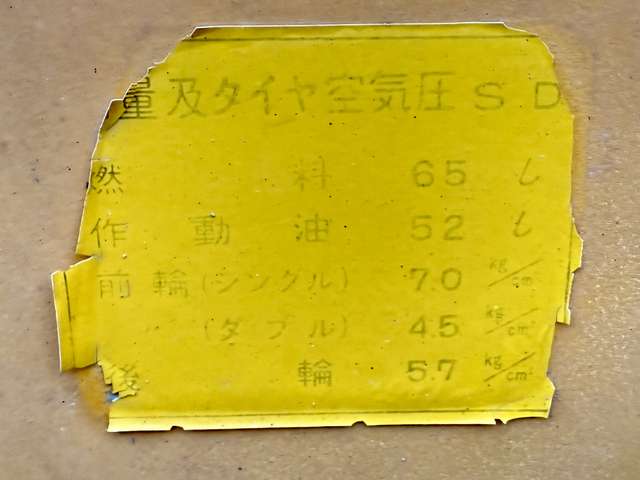 量及タイヤ空気圧SD
燃料 65 ℓ
作動油 52 ℓ
前輪(シングル) 7.0 kg/cm²
〃 (ダブル) 4.5 kg/cm²
後輪 5.7 kg/cm²